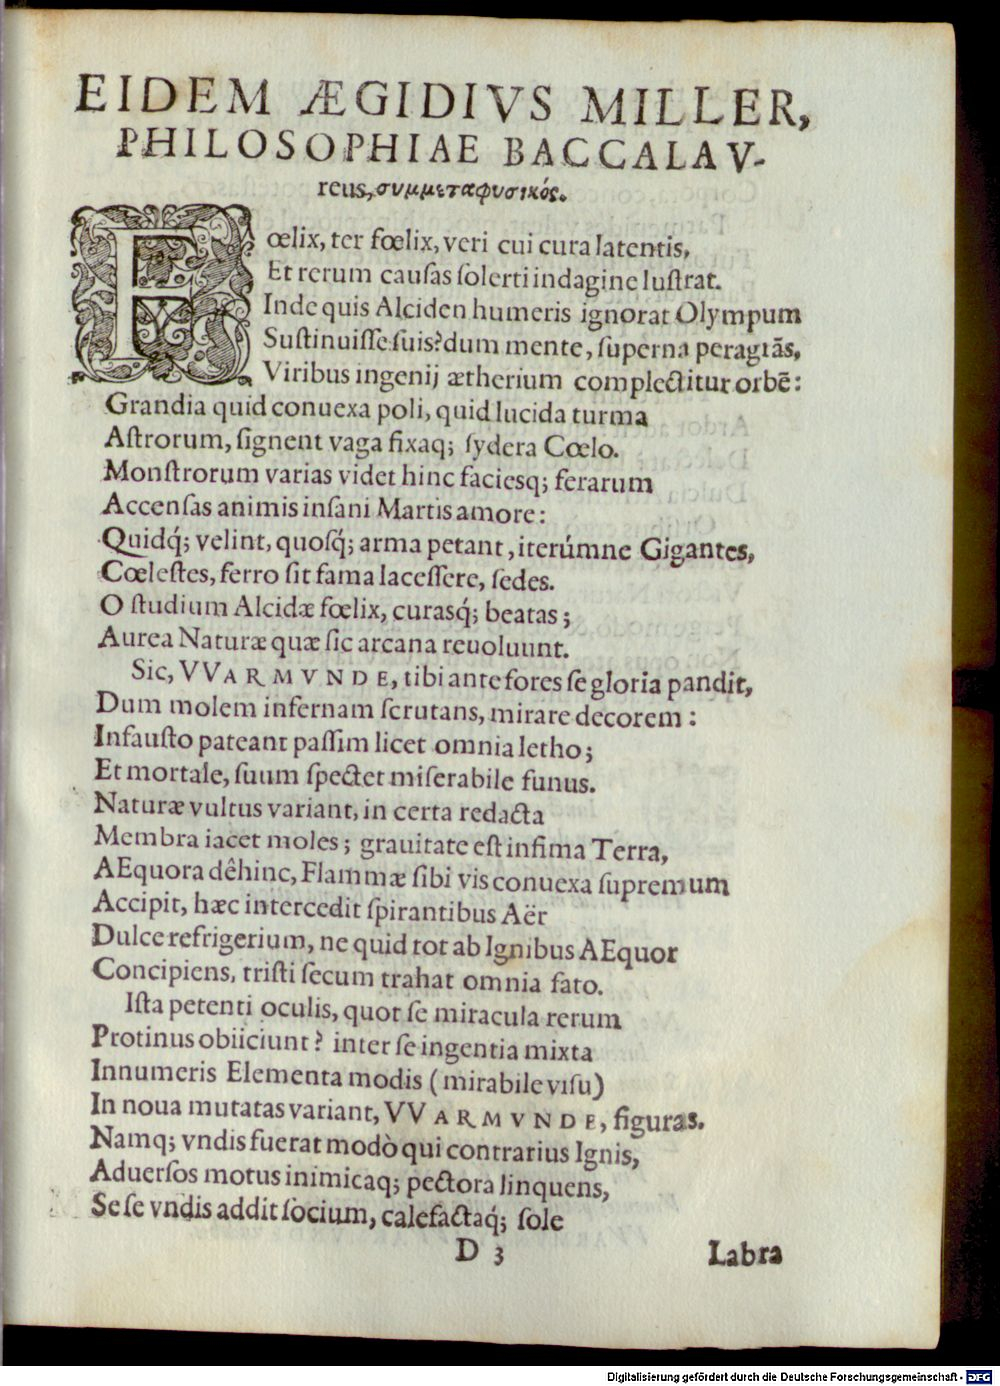 EIDEM ÆGIDIVS MILLER,
PHILOSOPHIAE BACCALAV-
reus, συμμεταφυσικός.
Fœlix, ter fœlix, veri cui cura latentis,
Et rerum causas solerti indagine lustrat.
Inde quis Alciden humeris ignorat Olympum
Sustinuisse suis? dum mente, superna peragrãs,
Viribus ingenij ætherium complectitur orbẽ:
Grandia quid conuexa poli, quid lucida turma
Astrorum, signent vaga fixaq; sydera Cœlo.
Monstrorum varias videt hinc faciesq; ferarum
Accensas animis insani Martis amore:
Quidq́; velint, quosq́; arma petant, iterúmne Gigantes,
Cœlestes, ferro sit fama lacessere, sedes.
O studium Alcidæ fœlix, curasq́; beatas;
Aurea Naturæ quæ sic arcana reuoluunt.
Sic, VVARMVNDE, tibi ante fores se gloria pandit,
Dum molem infernam scrutans, mirare decorem:
Infausto pateant passim licet omnia letho;
Et mortale, suum spectet miserabile funus.
Naturæ vultus variant, in certa redacta
Membra iacet moles; grauitate est infima Terra,
AEquora dêhinc, Flammæ sibi vis conuexa supremum
Accipit, hæc intercedit spirantibus Aër
Dulce refrigerium, ne quid tot ab Ignibus AEquor
Concipiens, tristi secum trahat omnia fato.
Ista petenti oculis, quot se miracula rerum
Protinus obiiciunt? inter se ingentia mixta
Innumeris Elementa modis (mirabile visu)
In noua mutatas variant, VVARMVNDE, figuras.
Namq; vndis fuerat modò qui contrarius Ignis,
Aduersos motus inimicaq; pectora linquens,
Se se vndis addit socium, calefactaq́; sole
D 3 Labra
Digitalisierung gefördert durch die Deutsche Forschungsgemeinschaft - DFG